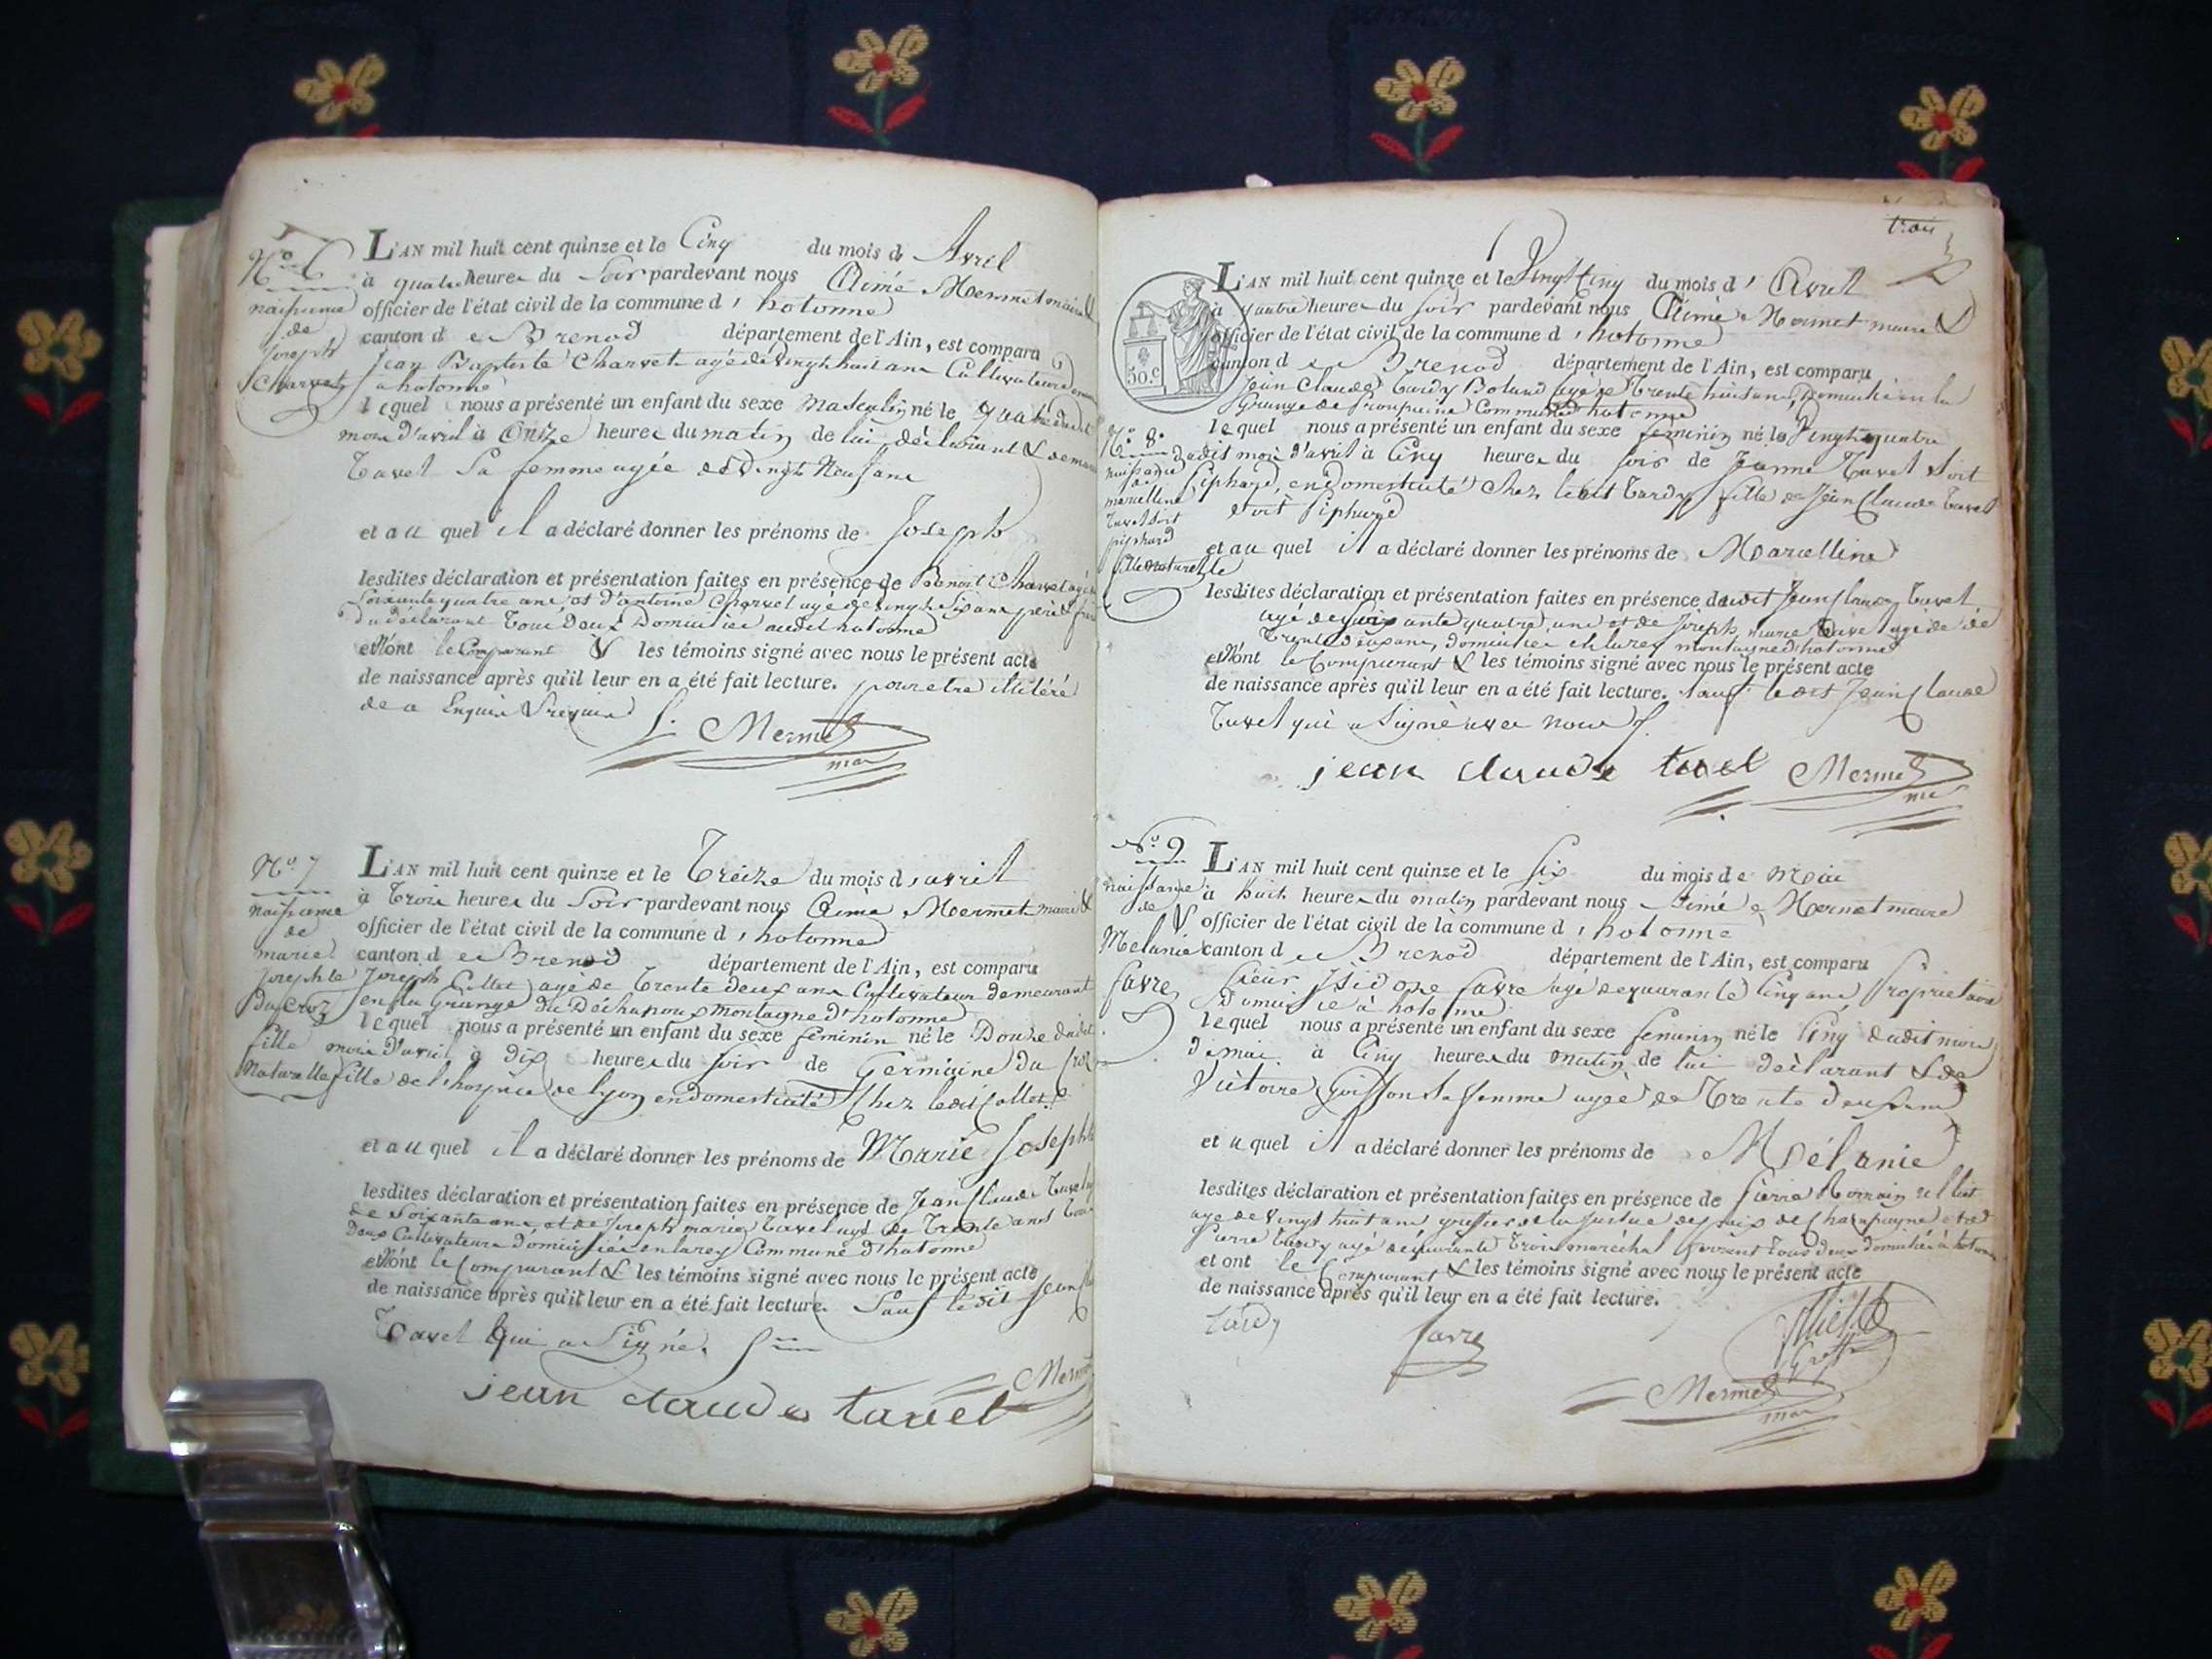 N.o 6
naissance
de
joseph
Charvet
L'AN mil huit cent quinze et le Cinq du mois d Avril
à quatre heures du Soir pardevant nous Aimé Mermet maire &
officier de l'état civil de la commune d' hotonne
canton d e Brenod département de l'Ain, est comparu
Jean Baptiste Charvet agé de vingt huit ans Cultivateur
a hotonne
lequel nous a présenté un enfant du sexe masculin né le quatre dudit
mois d'avril à Onze heures du matin de lui déclarant & de
Tavel Sa femme agée de vingt Neuf ans
et au quel il a déclaré donner les prénoms de Joseph
lesdites déclaration et présentation faites en présence de Benoit Charvet agé
Soixante quatre ans et d'antoine Charvet agé de vingt Six ans père & frère
du déclarant Tous Deux Domiciliés audit hotonne
et N'ont le Comparant & les témoins signé avec nous le présent acte
de naissance après qu'il leur en a été fait lecture. pour etre illitéré
de a Enquis & requis
Mermet
maire
N.o 7
naissance
de
marie
josephte
du Croz
fille
Naturelle
L'AN mil huit cent quinze et le Treize du mois d' avril
à Trois heures du Soir pardevant nous Aimé Mermet maire &
officier de l'état civil de la commune d' hotonne
canton d e Brenod département de l'Ain, est comparu
Joseph Collet agé de Trente deux ans Cultivateur demeurant
en la Grange du Déchapoux montagne d'hotonne
lequel nous a présenté un enfant du sexe féminin né le Douze dudit
mois d'avril à dix heures du soir de Germaine Du Croz
fille de l'hospice de lyon en domesticité Chez ledit Collet
et au quel il a déclaré donner les prénoms de Marie Josephte
lesdites déclaration et présentation faites en présence de Jean Claude Tavel
de Soixante ans et de Joseph marie Tavel agé de Trente ans tous
Deux Cultivateurs Domiciliés en larey Commune d'hotonne
et N'ont le Comparant & les témoins signé avec nous le présent acte
de naissance après qu'il leur en a été fait lecture. Sauf ledit Jean Claude
Tavel qui a Signé.
Mermet
jean claude tavel
trois
50.c
N.o 8.
naissance
de
marcelline
Tavel soit
piphard
fille naturelle
L'AN mil huit cent quinze et le Vingt Cinq du mois d' Avril
à quatre heures du soir pardevant nous Aimé Mermet maire &
officier de l'état civil de la commune d' hotonne
canton d e Brenod département de l'Ain, est comparu
Jean Claude Tardy Boland agé de Trente huit ans, Domicilié en la
Grange de Commune d'hotonne
lequel nous a présenté un enfant du sexe féminin né le Vingt quatre
dudit mois d'avril à Cinq heures du soir de Jeanne Tavel soit
Piphard, en domesticité Chez ledit Tardy fille de Jean Claude Tavel
soit Piphard
et au quel il a déclaré donner les prénoms de Marcelline
lesdites déclaration et présentation faites en présence dudit Jean Claude Tavel
agé de soixante quatre ans et de Joseph marie Tavel agé de
Trente deux ans, domiciliés en larey montagne d'hotonne
et N'ont le Comparant & les témoins signé avec nous le présent acte
de naissance après qu'il leur en a été fait lecture. Sauf ledit Jean Claude
Tavel qui a signé avec nous
jean claude tavel Mermet
maire
N.o 9
naissance
de
Mélanie
favre
L'AN mil huit cent quinze et le six du mois de mai
à huit heures du matin pardevant nous Aimé Mermet maire
& officier de l'état civil de la commune d' hotonne
canton d e Brenod département de l'Ain, est comparu
sieur Isidore favre agé de quarante Cinq ans, Propriétaire
Domicilié à hotonne
lequel nous a présenté un enfant du sexe féminin né le Cinq dudit mois
de mai à Cinq heures du matin de lui déclarant & de
Victoire Guisson sa femme agée de Trente deux ans
et a quel il a déclaré donner les prénoms de Mélanie
lesdites déclaration et présentation faites en présence de Pierre Romain
agé de Vingt huit ans greffier de la Justice de paix de Champagne et de
Pierre tardy agé de quarante Trois maréchal ferrant tous deux domiciliés à hotonne
et ont le Comparant & les témoins signé avec nous le présent acte
de naissance après qu'il leur en a été fait lecture.
tardy favre
Mermet
maire